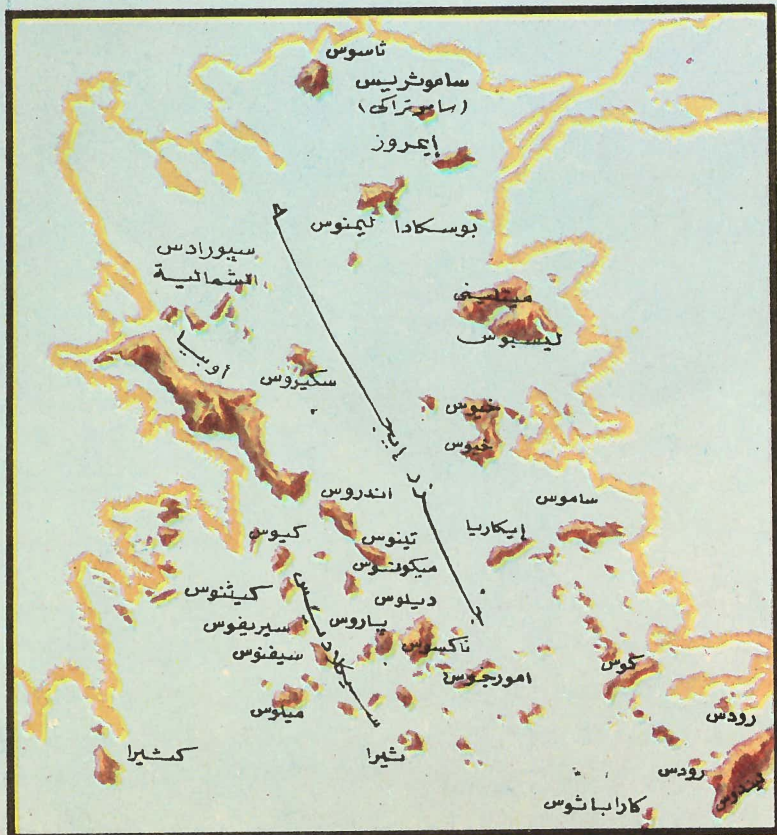 ثاسوس
ساموثريس
(ساموتراكى)
إيمروز
بوسكادا
ليمنوس
سيبورادس
الشمالية
ميتلينى
ليسبوس
أوبيا
سكيروس
خيوس
خيوس
جزر إيجه
اندروس
ساموس
إيكاريا
تينوس
كيوس
ميكونوس
كيثنوس
ديلوس
سيريفوس
پاروس
ناكسوس
سيفنوس
سيكلاديس
امورجوس
كوس
ميلوس
رودس
كثيرا
ثيرا
رودس
ليندوس
كاراباثوس